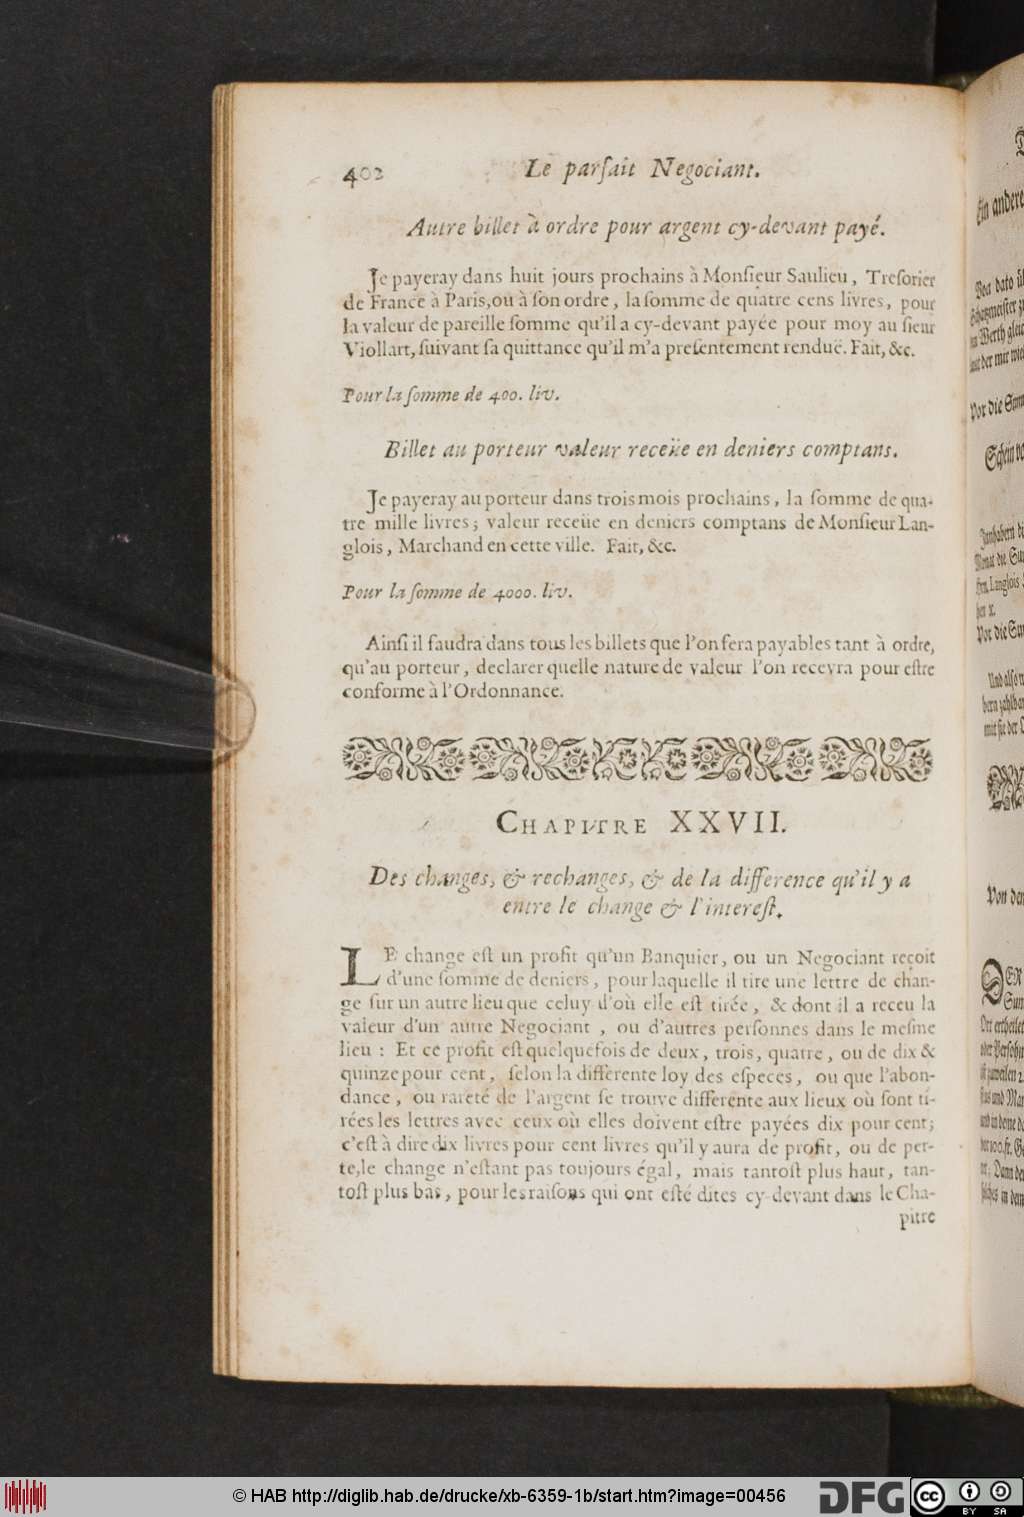 402 Le parfait Negociant.
Autre billet à ordre pour argent cy-devant payé.
Je payeray dans huit jours prochains à Monſieur Saulieu, Treſorier
de France à Paris, ou à ſon ordre, la ſomme de quatre cens livres, pour
la valeur de pareille ſomme qu'il a cy-devant payée pour moy au ſieur
Viollart, ſuivant ſa quittance qu'il m'a preſentement renduë. Fait, &c.
Pour la ſomme de 400. liv.
Billet au porteur valeur receüe en deniers comptans.
Je payeray au porteur dans trois mois prochains, la ſomme de qua-
tre mille livres; valeur receüe en deniers comptans de Monſieur Lan-
glois, Marchand en cette ville. Fait, &c.
Pour la ſomme de 4000. liv.
Ainſi il faudra dans tous les billets que l'on fera payables tant à ordre,
qu'au porteur, declarer quelle nature de valeur l'on recevra pour eſtre
conforme à l'Ordonnance.
CHAPITRE XXVII.
Des changes, & rechanges, & de la difference qu'il y a
entre le change & l'intereſt.
LE change eſt un profit qu'un Banquier, ou un Negociant reçoit
d'une ſomme de deniers, pour laquelle il tire une lettre de chan-
ge ſur un autre lieu que celuy d'où elle eſt tirée, & dont il a receu la
valeur d'un autre Negociant, ou d'autres perſonnes dans le meſme
lieu : Et ce profit eſt quelquefois de deux, trois, quatre, ou de dix &
quinze pour cent, ſelon la differente loy des eſpeces, ou que l'abon-
dance, ou rareté de l'argent ſe trouve differente aux lieux où ſont ti-
rées les lettres avec ceux où elles doivent eſtre payées dix pour cent;
c'eſt à dire dix livres pour cent livres qu'il y aura de profit, ou de per-
te, le change n'eſtant pas toujours égal, mais tantoſt plus haut, tan-
toſt plus bas, pour les raiſons qui ont eſté dites cy-devant dans le Cha-
pitre
Ein andere
Von dato
Werth
Vor die
Schein
Monat die
Langlois
Vor die
Und alſo
mit ſie der
Von den
DER
Ort ertheilet
oder
und Man
ſolches in dem
© HAB http://diglib.hab.de/drucke/xb-6359-1b/start.htm?image=00456
DFG
cc BY SA